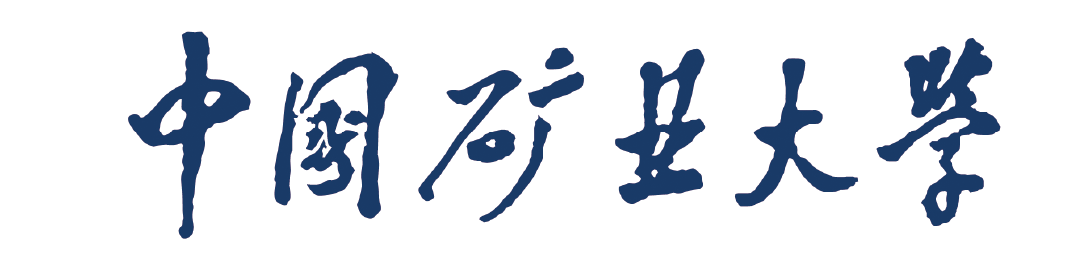 中国矿业大学